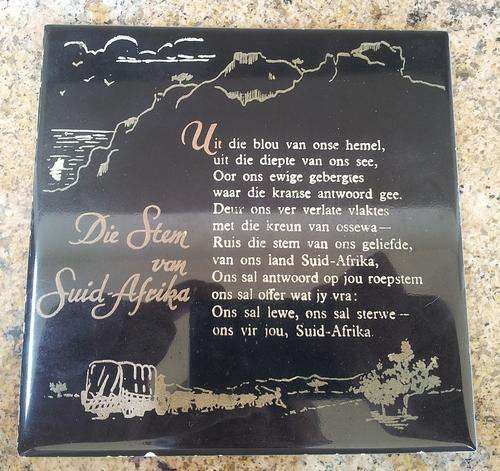 Die Stem
van
Suid-Afrika
Uit die blou van onse hemel,
uit die diepte van ons see,
Oor ons ewige gebergtes
waar die kranse antwoord gee.
Deur ons ver verlate vlaktes
met die kreun van ossewa—
Ruis die stem van ons geliefde,
van ons land Suid-Afrika,
Ons sal antwoord op jou roepstem
ons sal offer wat jy vra:
Ons sal lewe, ons sal sterwe—
ons vir jou, Suid-Afrika.